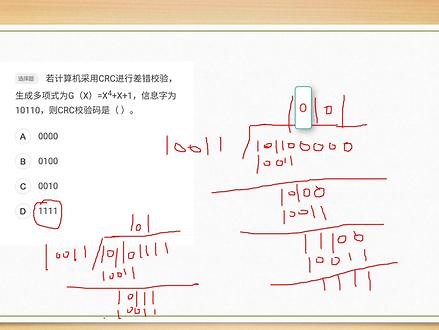 选择题 若计算机采用CRC进行差错校验，
生成多项式为G（X）=X⁴+X+1，信息字为
10110，则CRC校验码是（ ）。
A 0000
B 0100
C 0010
D 1111
10101
10011 101100000
10011
10100
10011
11100
10011
1111
101
10011 101101111
10011
10111
10011